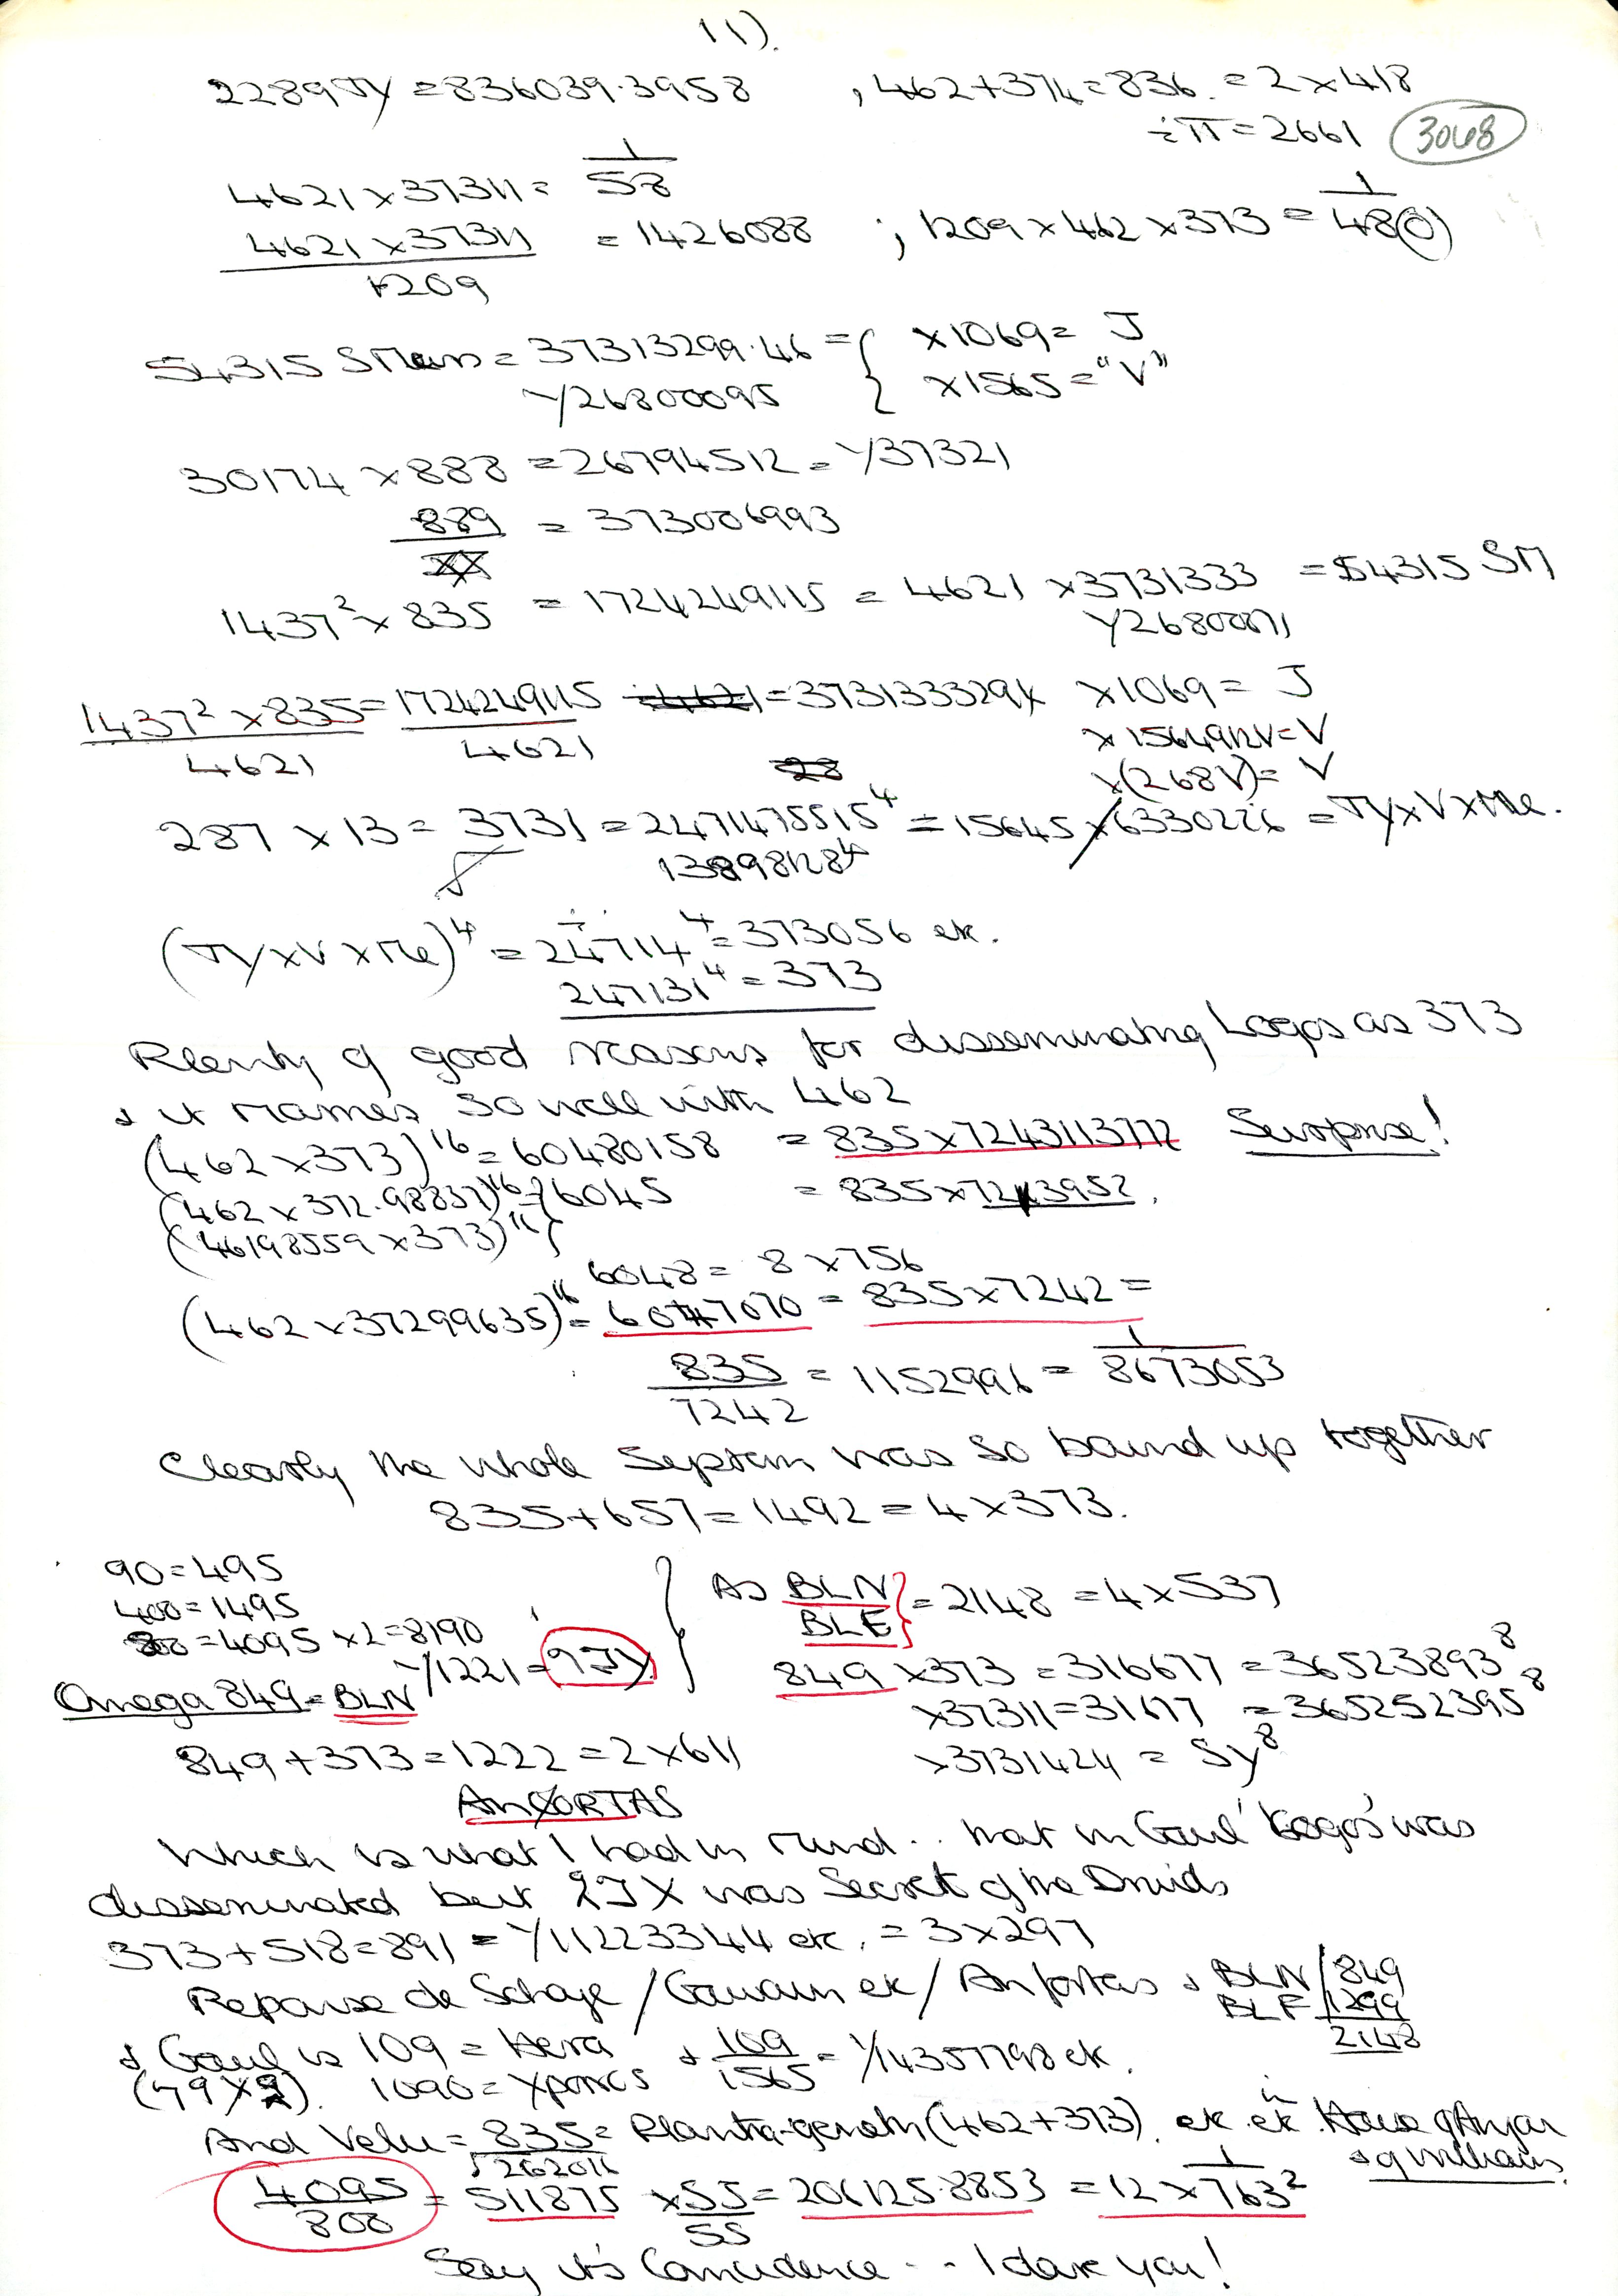 11).
2289 JY = 836039.3958 , 462+374=836. = 2×418
÷π = 2661 3048
4621 × 37311 = 1/58
4621 × 37311 / 1209 = 1426088 ; 1209 × 462 × 373 = 1/48(0)
54315 SMers = 37313299.46 = { ×1069 = J
Y26800095 { ×1565 = "V"
30174 × 888 = 26794512 = Y37321
889 = 373006993
1437² × 835 = 1724249115 = 4621 × 3731333 = 54315 SM
Y26800071
1437² × 835 / 4621 = 1724249115 / 4621 = 373133329 ×1069 = J
×1564912V = V
×(268V) = V
287 × 13 = 3731 = 2471475515⁴ = 15645 × 6330226 = JY×V×Me.
138981284
(JY×V×Me)⁴ = 24714⁴ = 373056 etc.
247131⁴ = 373
Plenty of good reasons for disseminating Logos as 373
& it names so well with 462
(462 × 373)¹⁶ = 60480158 = 835×7243113772 Surprise!
(462 × 372.98837)¹⁶ 6045 = 835×7243952.
(46198559 × 373)¹⁶
6048 = 8 × 756
(462 × 37299635)¹⁶ = 6047070 = 835×7242 =
835 / 7242 = 1152996 = 1/8673053
Clearly the whole System was so bound up together
835+657 = 1492 = 4×373.
90 = 495
400 = 1495
800 = 4095 ×2 = 8190
Y1221 = 9JY
As BLN / BLE = 2148 = 4×537
Omega 849 = BLN
849 × 373 = 316677 = 36523893⁸
×37311 = 31677 = 365252395⁸
849 + 373 = 1222 = 2×611
×3731424 = SY⁸
ANFORTAS
Which is what I had in mind .. that in Gaul 'Logos' was
disseminated but 2JX was Secret of the Druids
373 + 518 = 891 = Y11223344 etc. = 3×297
Reponse de Schaje / Gawain etc / Anfortas & BLN / 849
BLE / 1299
2148
& Gaul is 109 = Hera & 109 / 1565 = Y14357798 etc.
(79×2). 1090 = Xponos
And Velu = 835 = Planta-genetn (462+373). etc etc in House of Anjou
√262011 & of William.
4095 / 800 = 511875 × 55 / 55 = 206125.8853 = 12 × 1/763²
Say it's Coincidence -- I dare you!